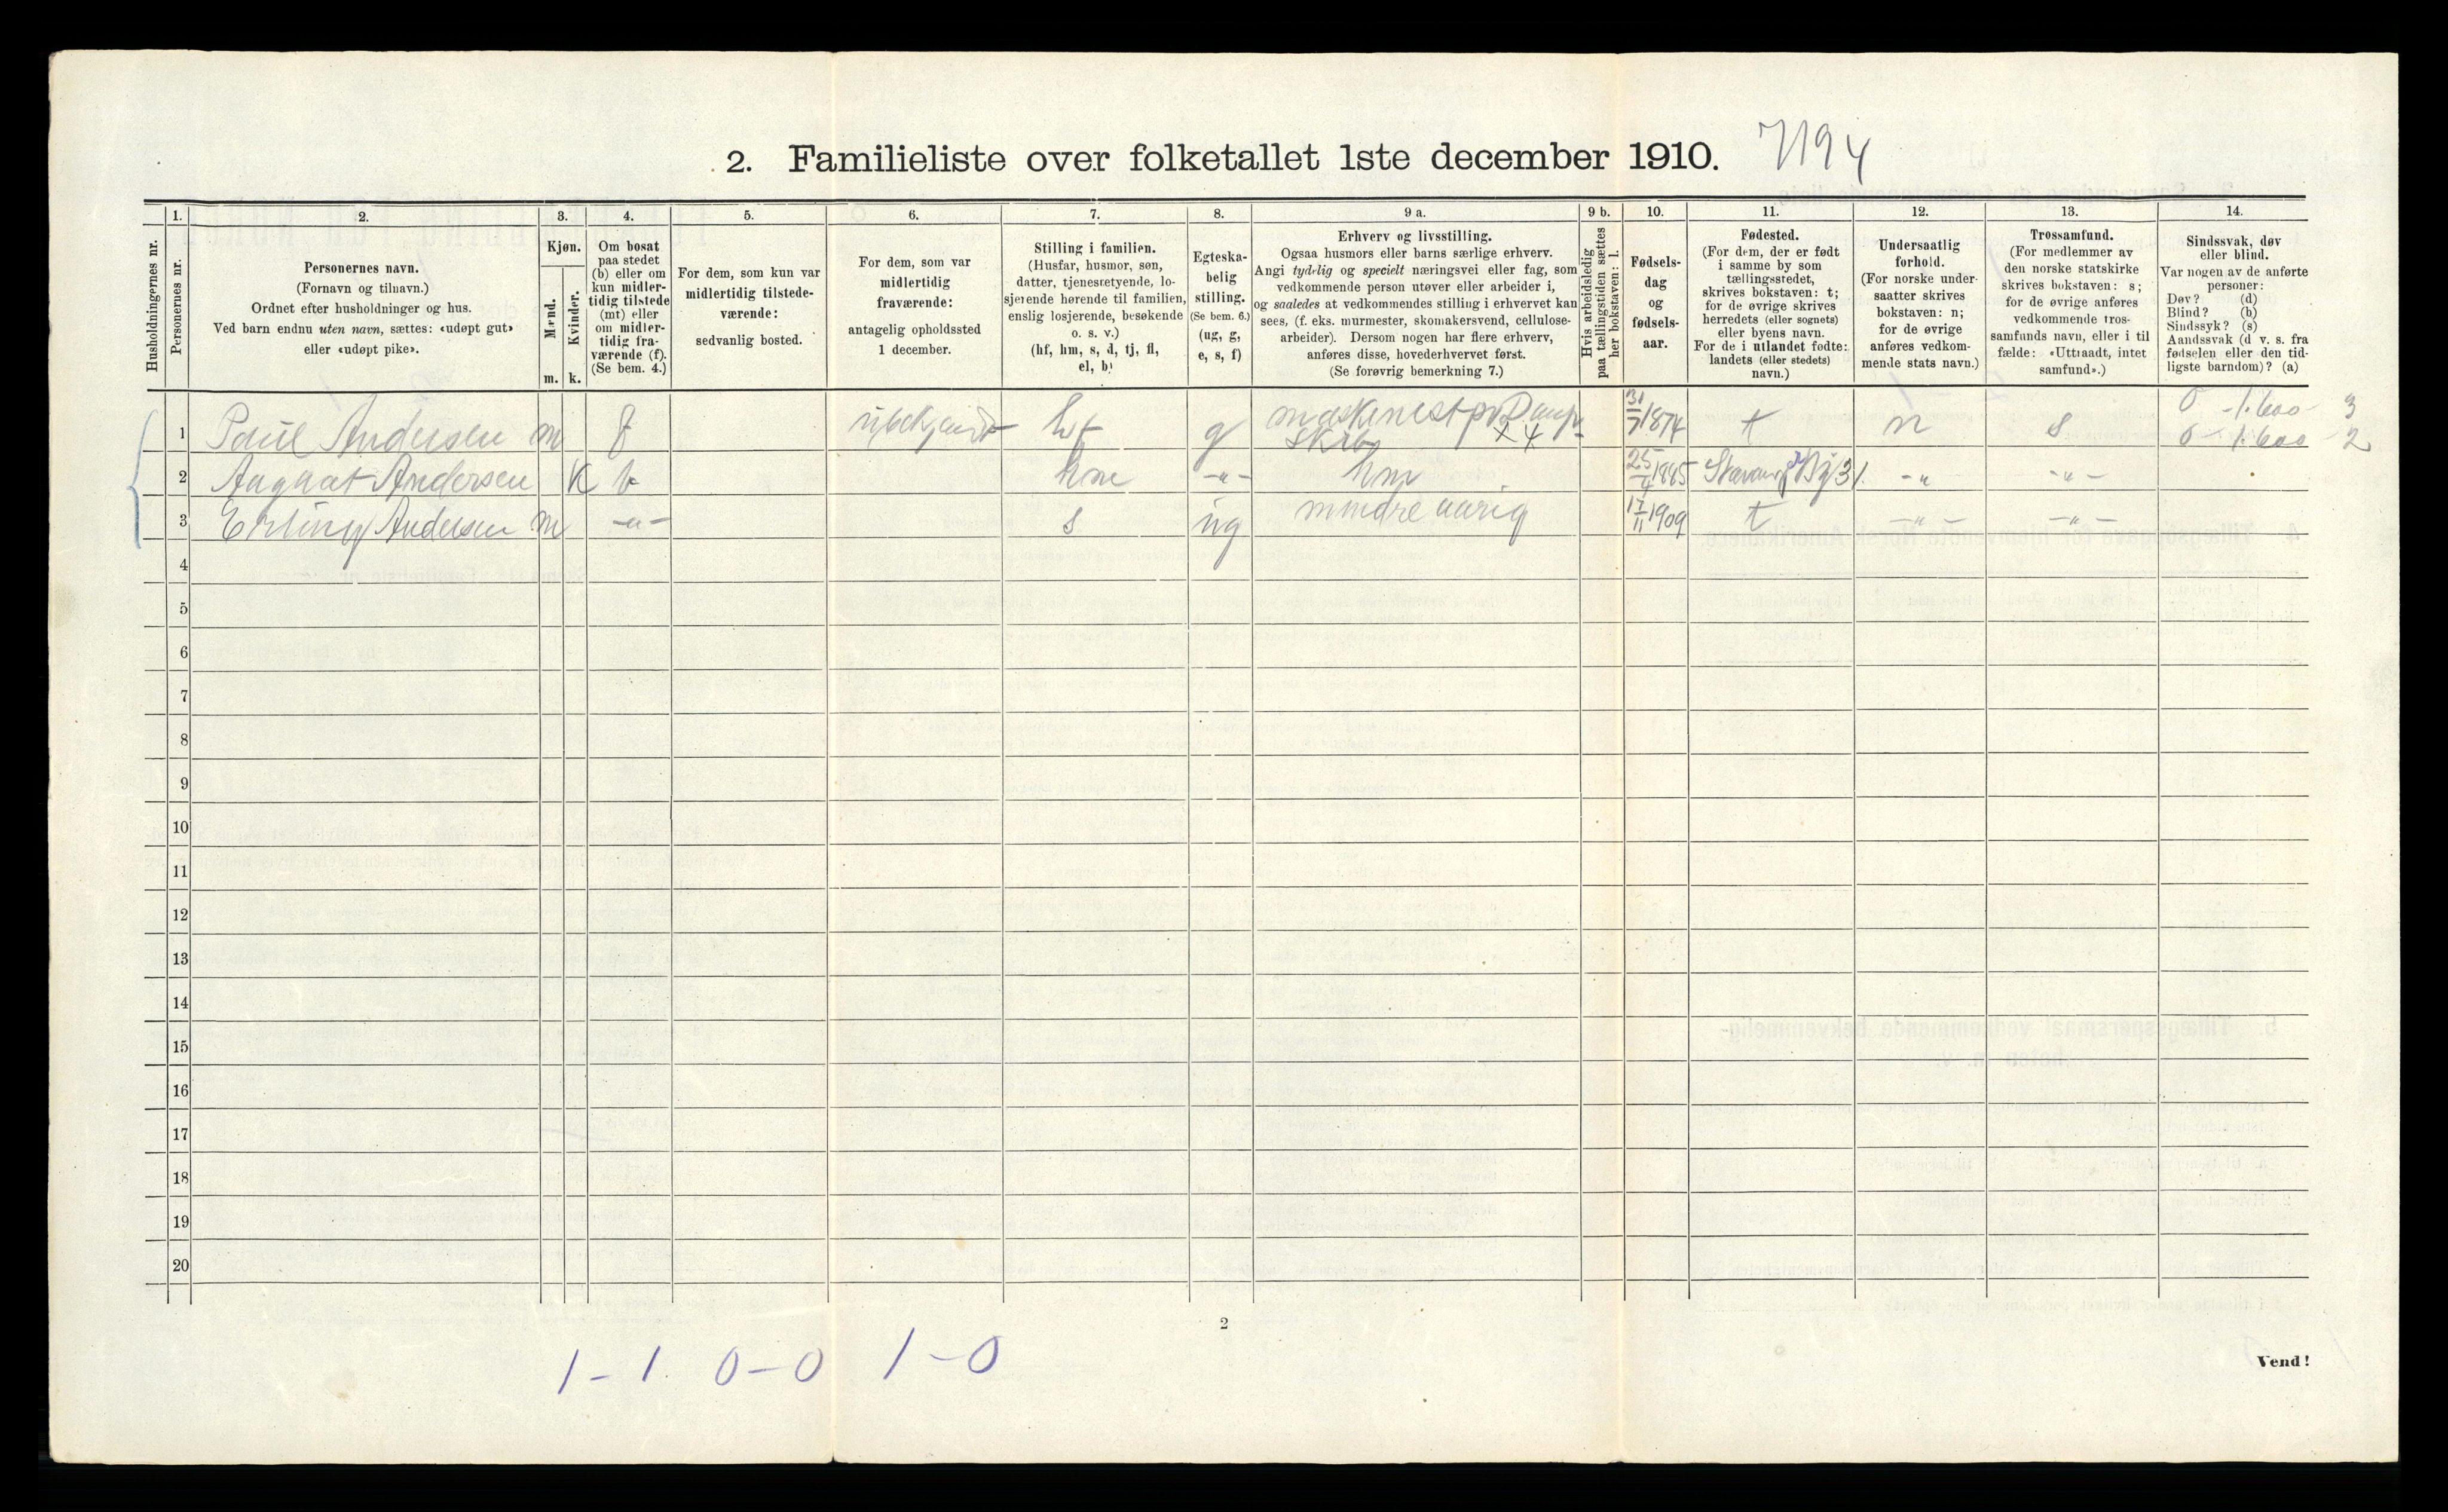 2. Familieliste over folketallet 1ste december 1910. 7194
1. 2. 3. 4. 5. 6. 7. 8. 9 a. 9 b. 10. 11. 12. 13. 14.
Husholdningernes nr.
Personernes nr.
Personernes navn.
(Fornavn og tilnavn.)
Ordnet efter husholdninger og hus.
Ved barn endnu uten navn, sættes: «udøpt gut»
eller «udøpt pike».
Kjøn.
Mænd.
Kvinder.
m. k.
Om bosat
paa stedet
(b) eller om
kun midler-
tidig tilstede
(mt) eller
om midler-
tidig fra-
værende (f).
(Se bem. 4.)
For dem, som kun var
midlertidig tilstede-
værende:
sedvanlig bosted.
For dem, som var
midlertidig
fraværende:
antagelig opholdssted
1 december.
Stilling i familien.
(Husfar, husmor, søn,
datter, tjenestetyende, lo-
sjerende hørende til familien,
enslig losjerende, besøkende
o. s. v.)
(hf, hm, s, d, tj, fl,
el, b)
Egteska-
belig
stilling.
(Se bem. 6.)
(ug, g,
e, s, f)
Erhverv og livsstilling.
Ogsaa husmors eller barns særlige erhverv.
Angi tydelig og specielt næringsvei eller fag, som
vedkommende person utøver eller arbeider i,
og saaledes at vedkommendes stilling i erhvervet kan
sees, (f. eks. murmester, skomakersvend, cellulose-
arbeider). Dersom nogen har flere erhverv,
anføres disse, hovederhvervet først.
(Se forøvrig bemerkning 7.)
Hvis arbeidsledig
paa tællingstiden sættes
her bokstaven: l.
Fødsels-
dag
og
fødsels-
aar.
Fødested.
(For dem, der er født
i samme by som
tællingsstedet,
skrives bokstaven: t;
for de øvrige skrives
herredets (eller sognets)
eller byens navn.
For de i utlandet fødte:
landets (eller stedets)
navn.)
Undersaatlig
forhold.
(For norske under-
saatter skrives
bokstaven: n;
for de øvrige
anføres vedkom-
mende stats navn.)
Trossamfund.
(For medlemmer av
den norske statskirke
skrives bokstaven: s;
for de øvrige anføres
vedkommende tros-
samfunds navn, eller i til
fælde: «Uttraadt, intet
samfund».)
Sindssvak, døv
eller blind.
Var nogen av de anførte
personer:
Døv? (d)
Blind? (b)
Sindssyk? (s)
Aandssvak (d v. s. fra
fødselen eller den tid-
ligste barndom)? (a)
0 - 1.600 - 3
1 Paul Andersen m f ubekjendt hf g maskinest paa Damp- 31/7 1874 t n s 0 - 1.600 - 2
skib x 4
2 Aagaat Andersen K b hm -"- hm 25/4 1885 Stavanger By 31. -"- -"-
3 Erling Andersen m -"- s ug mindreaarig 17/11 1909 t -"- -"-
4
5
6
7
8
9
10
11
12
13
14
15
16
17
18
19
20
2
1-1 0-0 1-0
Vend!